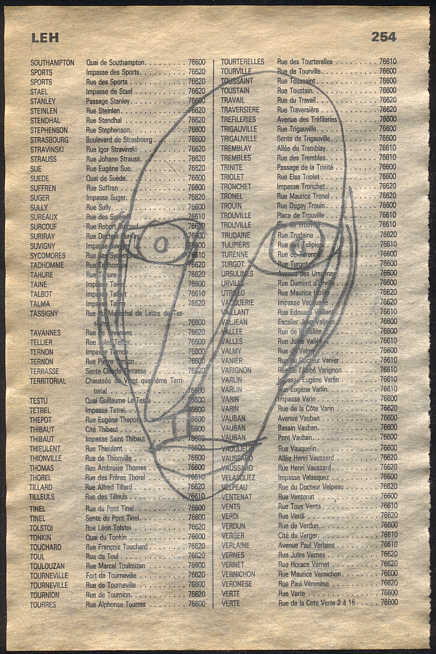 LEH 254
SOUTHAMPTON Quai de Southampton 76600
SPORTS Impasse des Sports 76620
SPORTS Rue des Sports 76620
STAEL Impasse de Stael 76620
STANLEY Passage Stanley 76600
STEINLEN Rue Steinlen 76620
STENDHAL Rue Stendhal 76620
STEPHENSON Rue Stephenson 76600
STRASBOURG Boulevard de Strasbourg 76600
STRAVINSKI Rue Igor Stravinski 76620
STRAUSS Rue Johann Strauss 76620
SUE Rue Eugène Sue 76620
SUEDE Quai de Suède 76600
SUFFREN Rue Suffren 76600
SUGER Impasse Suger 76620
SULLY Rue Sully 76600
SUREAUX Rue des 76610
SURCOUF Rue Robert
SURIRAY Rue
SUVIGNY Impasse
SYCOMORES Rue
TACHOMME
TAHURE
TAINE Impasse
TALBOT Impasse 76610
TALMA Rue 76620
TASSIGNY Rue de Lattre de Tas-
TAVANNES Rue 76620
TELLIER Rue 76610
TERNON Impasse 76600
TERNON Rue 76600
TERRASSE Sente 76620
TERRITORIAL Chaussée Terri-
torial 76600
TESTU Quai Guillaume Le Testu 76600
TETREL Impasse Tetrel 76600
THEPOT Rue Eugène Thepot 76600
THIBAUT Cité Thibaut 76600
THIBAUT Impasse Saint Thibaut 76600
THIEULENT Rue Thieulent 76600
THIONVILLE Rue de Thionville 76600
THOMAS Rue Ambroise Thomas 76600
THOREL Rue des Frères Thorel 76610
TILLARD Rue Alfred Tillard 76620
TILLEULS Rue des Tilleuls 76610
TINEL Rue du Pont Tinel 76600
TINEL Sente du Pont Tinel 76600
TOLSTOI Rue Léon Tolstoi 76620
TONKIN Quai du Tonkin 76600
TOUCHARD Rue François Touchard 76620
TOUL Rue de Toul 76620
TOULOUZAN Rue Marcel Toulouzan 76600
TOURNEVILLE Fort de Tourneville 76620
TOURNEVILLE Rue de Tourneville 76600
TOURNION Rue de Tournion 76620
TOURRES Rue Alphonse Tourres 76600
TOURTERELLES Rue des Tourterelles 76610
TOURVILLE Rue de Tourville 76600
TOUSSAINT Rue Toussaint 76600
TOUSTAIN Rue Toustain 76600
TRAVAIL Rue du Travail 76620
TRAVERSIERE Rue Traversière 76620
TREFILERIES Avenue des Tréfileries 76600
TRIGAUVILLE Rue Trigauville 76600
TRIGAUVILLE Sente de Trigauville 76600
TREMBLAY Allée du Tremblay 76610
TREMBLES Rue des Trembles 76610
TRINITE Passage de la Trinité 76600
TRIOLET Rue Elsa Triolet 76600
TRONCHET Impasse Tronchet 76620
TRONEL Rue Maurice Tronel 76620
TROUIN Rue Duguay Trouin 76600
TROUVILLE Place de Trouville 76610
TROUVILLE
TRUDAINE Rue Trudaine 76620
TULIPIERS
TURENNE
TURGOT Rue
URSULINES des Ursulines 76600
URVILLE Rue Dumont d'Urville 76600
UTRILLO Rue Maurice 76620
VACQUERIE Impasse Vacquerie
VAILLANT Rue Edouard
VALJEAN Escalier Jean Valjean
VALLEE Rue de la Vallée 76600
VALLES Rue Jules Vallès 76610
VALMY Rue de Valmy 76600
VANIER Rue du Docteur Vanier 76610
VARIGNON Rue de l'Abbé Varignon 76610
VARLIN Impasse Eugène Varlin 76610
VARLIN Rue Eugène Varlin 76610
VARIN Impasse Varin 76600
VARIN Rue de la Côte Varin 76620
VAUBAN Avenue Vauban 76600
VAUBAN Bassin Vauban 76600
VAUBAN Pont Vauban 76600
VAUQUELIN Rue Vauquelin 76600
VAUSSARD Allée Henri Vaussard 76620
VAUSSARD Rue Henri Vaussard 76620
VELASQUEZ Impasse Velasquez 76600
VELPEAU Rue du Docteur Velpeau 76620
VENTENAT Rue Ventenat 76600
VENTS Rue Tous Vents 76610
VERDI Rue Verdi 76620
VERDUN Rue de Verdun 76600
VERGER Cité du Verger 76610
VERLAINE Avenue Paul Verlaine 76610
VERNES Rue Jules Vernes 76620
VERNET Rue Horace Vernet 76620
VERNICHON Rue Maurice Vernichon 76600
VERONESE Rue Paul Véronèse 76620
VERTE Rue Verte 76600
VERTE Rue de la Cote Verte 2 à 16 76600